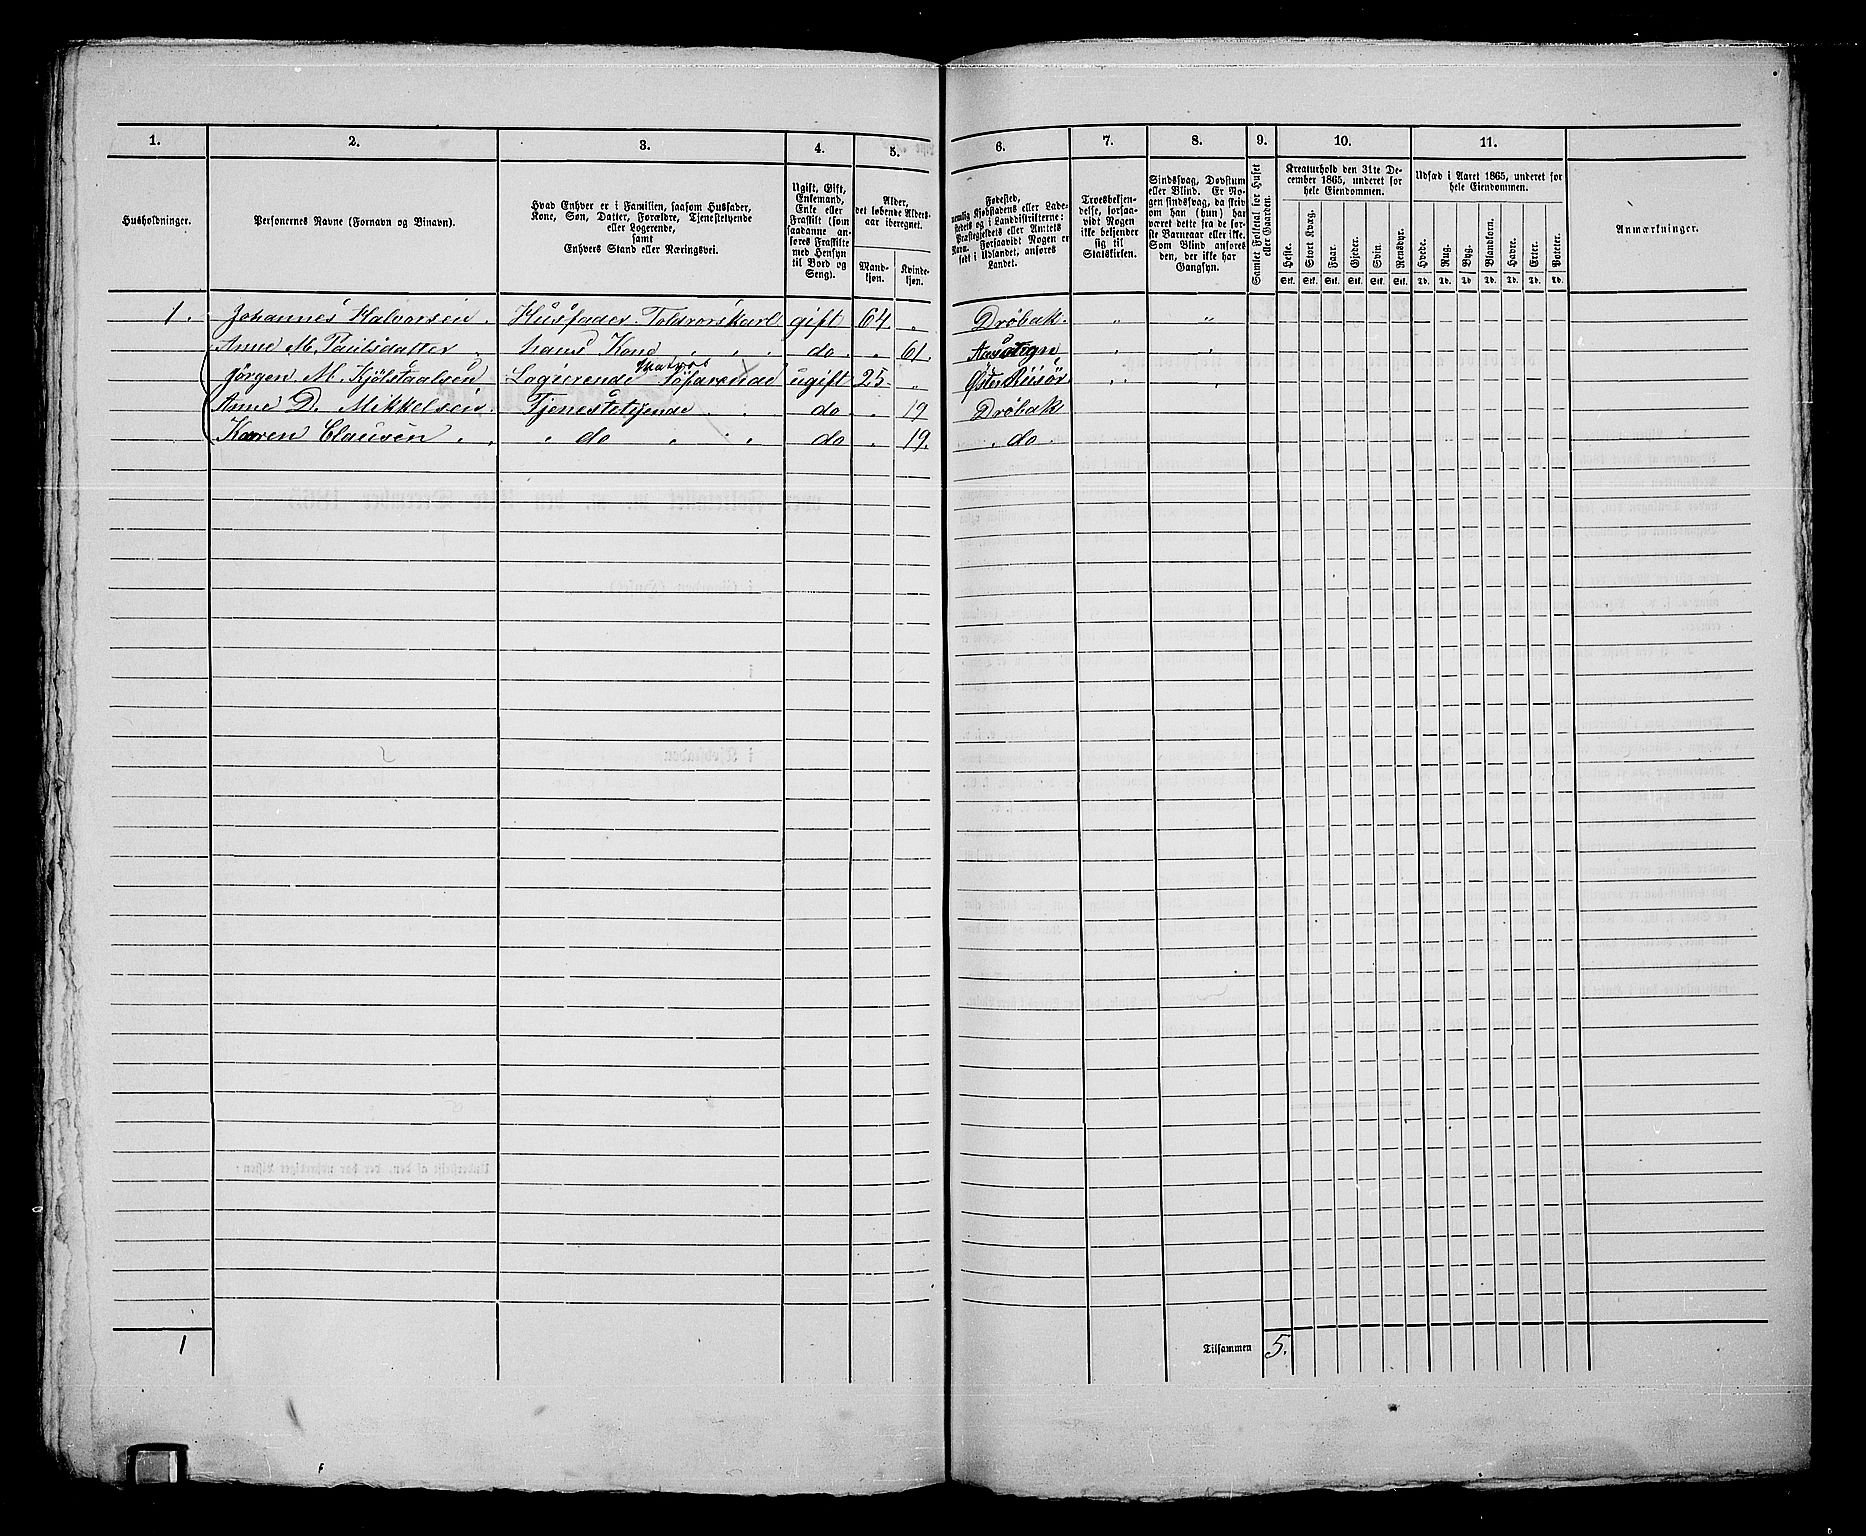 1. 2. 3. 4. 5. 6. 7. 8. 9. 10. 11.
Husholdninger.
Personernes Navne (Fornavn og Binavn).
Hvad Enhver er i Familien, saasom Husfader,
Kone, Søn, Datter, Forældre, Tjenestetyende
eller Logerende,
samt
Enhvers Stand eller Næringsvei.
Ugift, Gift,
Enkemand,
Enke eller
Fraskilt (som
saadanne an-
føres Fraskilte
med Hensyn
til Bord og
Seng).
Alder,
det løbende Alders-
aar iberegnet.
Mand-
kjøn.
Kvinde-
kjøn.
Fødested,
nemlig Kjøbstadens eller Lade-
stedets og i Landdistrikterne:
Præstegjældets eller Amtets
Navn. Forsaavidt Nogen er
født i Udlandet, anføres
Landet.
Troesbekjen-
delse, forsaa-
vidt Nogen
ikke bekjender
sig til
Statskirken.
Sindssvag, Døvstum
eller Blind. Er No-
gen sindssvag, da skriv
om han (hun) har
været dette fra de før-
ste Barneaar eller ikke.
Som Blind anføres
den, der ikke har
Gangsyn.
Samlet Folketal for Huset
eller Gaarden.
Kreaturhold den 31te De-
cember 1865, underet for
hele Eiendommen.
Heste. Stort Kvæg. Faar. Gjeder. Svin. Rensdyr.
Stk. Stk. Stk. Stk. Stk. Stk.
Udsæd i Aaret 1865, underet for
hele Eiendommen.
Hvede. Rug. Byg. Blandkorn. Havre. Erter. Poteter.
Td. Td. Td. Td. Td. Td. Td.
Anmærkninger.
1. Johannes Halvorsen. Husfader. Toldrorskarl gift 64. " Drøbak. " "
Anne M. Paulsdatter " hans Kone " " " do. " 61. " "
Jørgen M. Kjölstaalsen, Logerende Søfarende ugift 25. " Øster Riisör " "
Anne D. Mikkelsen. Tjenestetyende " " do " 19 Drøbak
Karen Clausen " " " do " " " do " 19. " do.
1
Tilsammen 5.